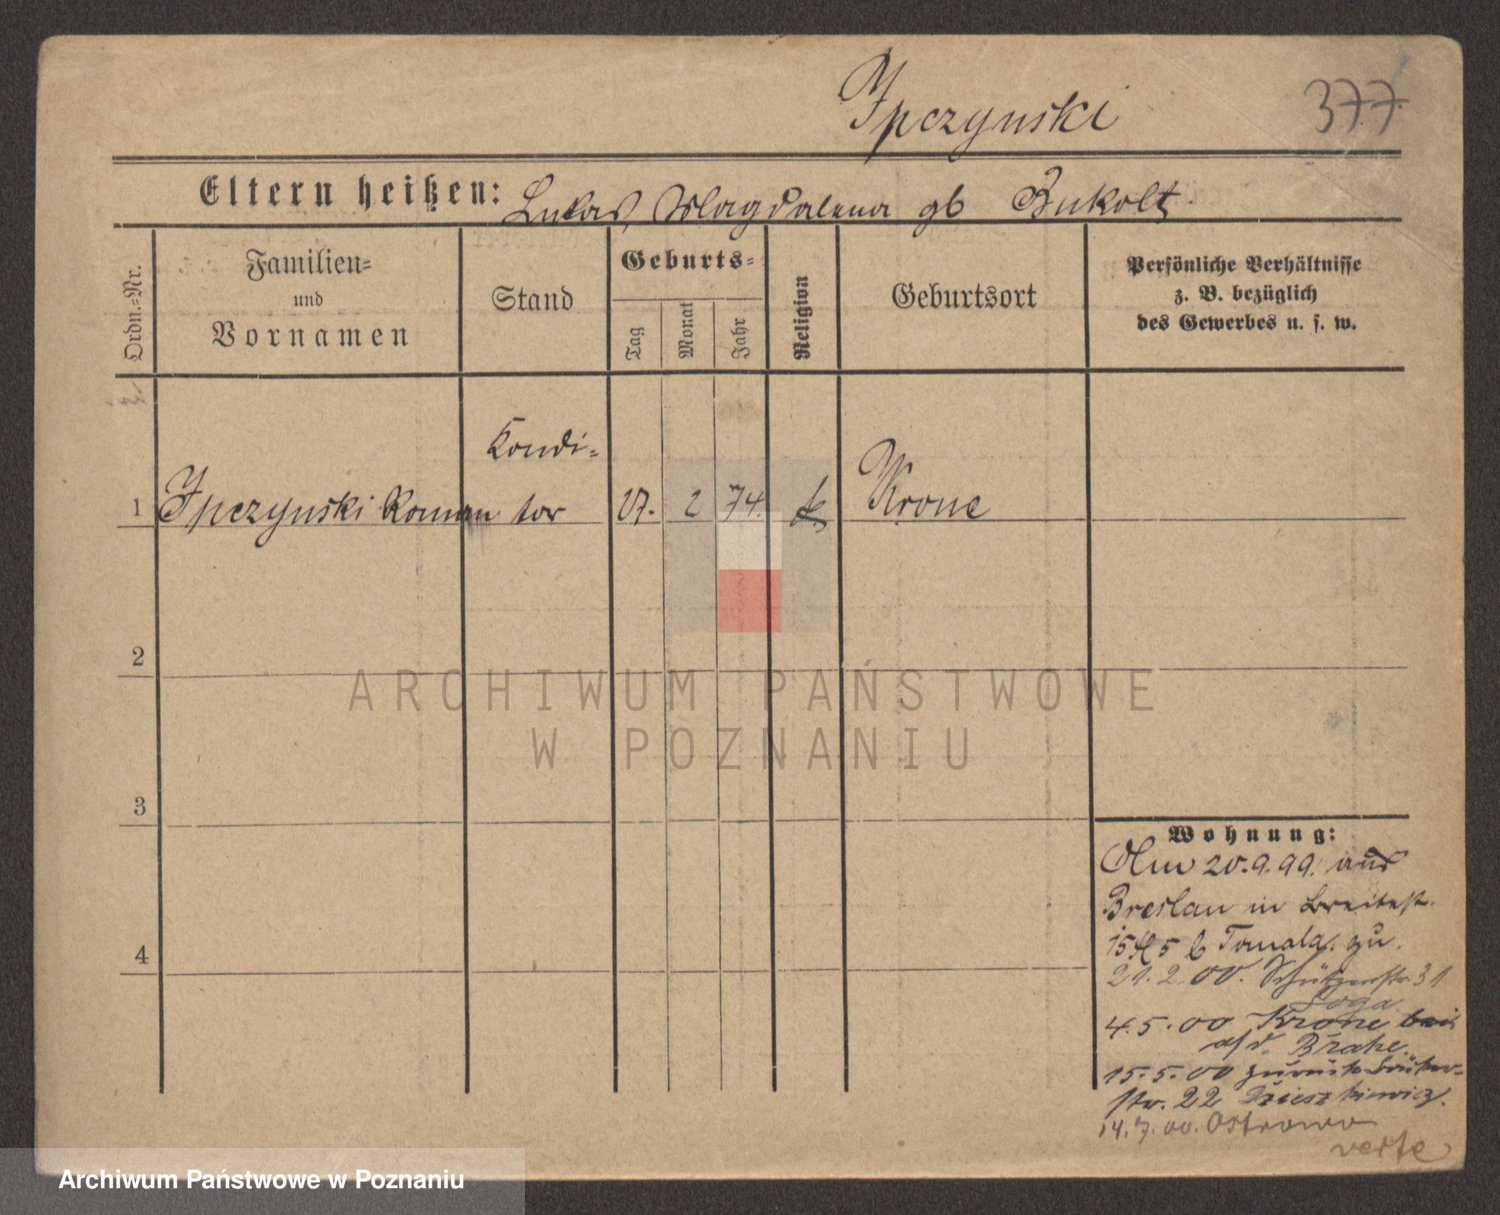 Ipczynski 377
Eltern heißen: Lukas, Magdalena gb Bukolt
Ordn.-Nr.
Familien-
und
Vornamen
Stand
Geburts-
Tag
Monat
Jahr
Religion
Geburtsort
Persönliche Verhältnisse
z. B. bezüglich
des Gewerbes u. s. w.
Kondi-
1 Ipczynski Roman tor 17. 2 74. k. Krone
2
ARCHIWUM PAŃSTWOWE
W POZNANIU
3
4
Wohnung:
20.9.99. aus
Breslau in Breitest.
15 5 b Tomala. zu
21.2.00. Schützenstr. 31
4.5.00 Krone
a/d. Brahe.
15.5.00 zurück
str. 22
14.7.00. Ostrowo
verte
Archiwum Państwowe w Poznaniu